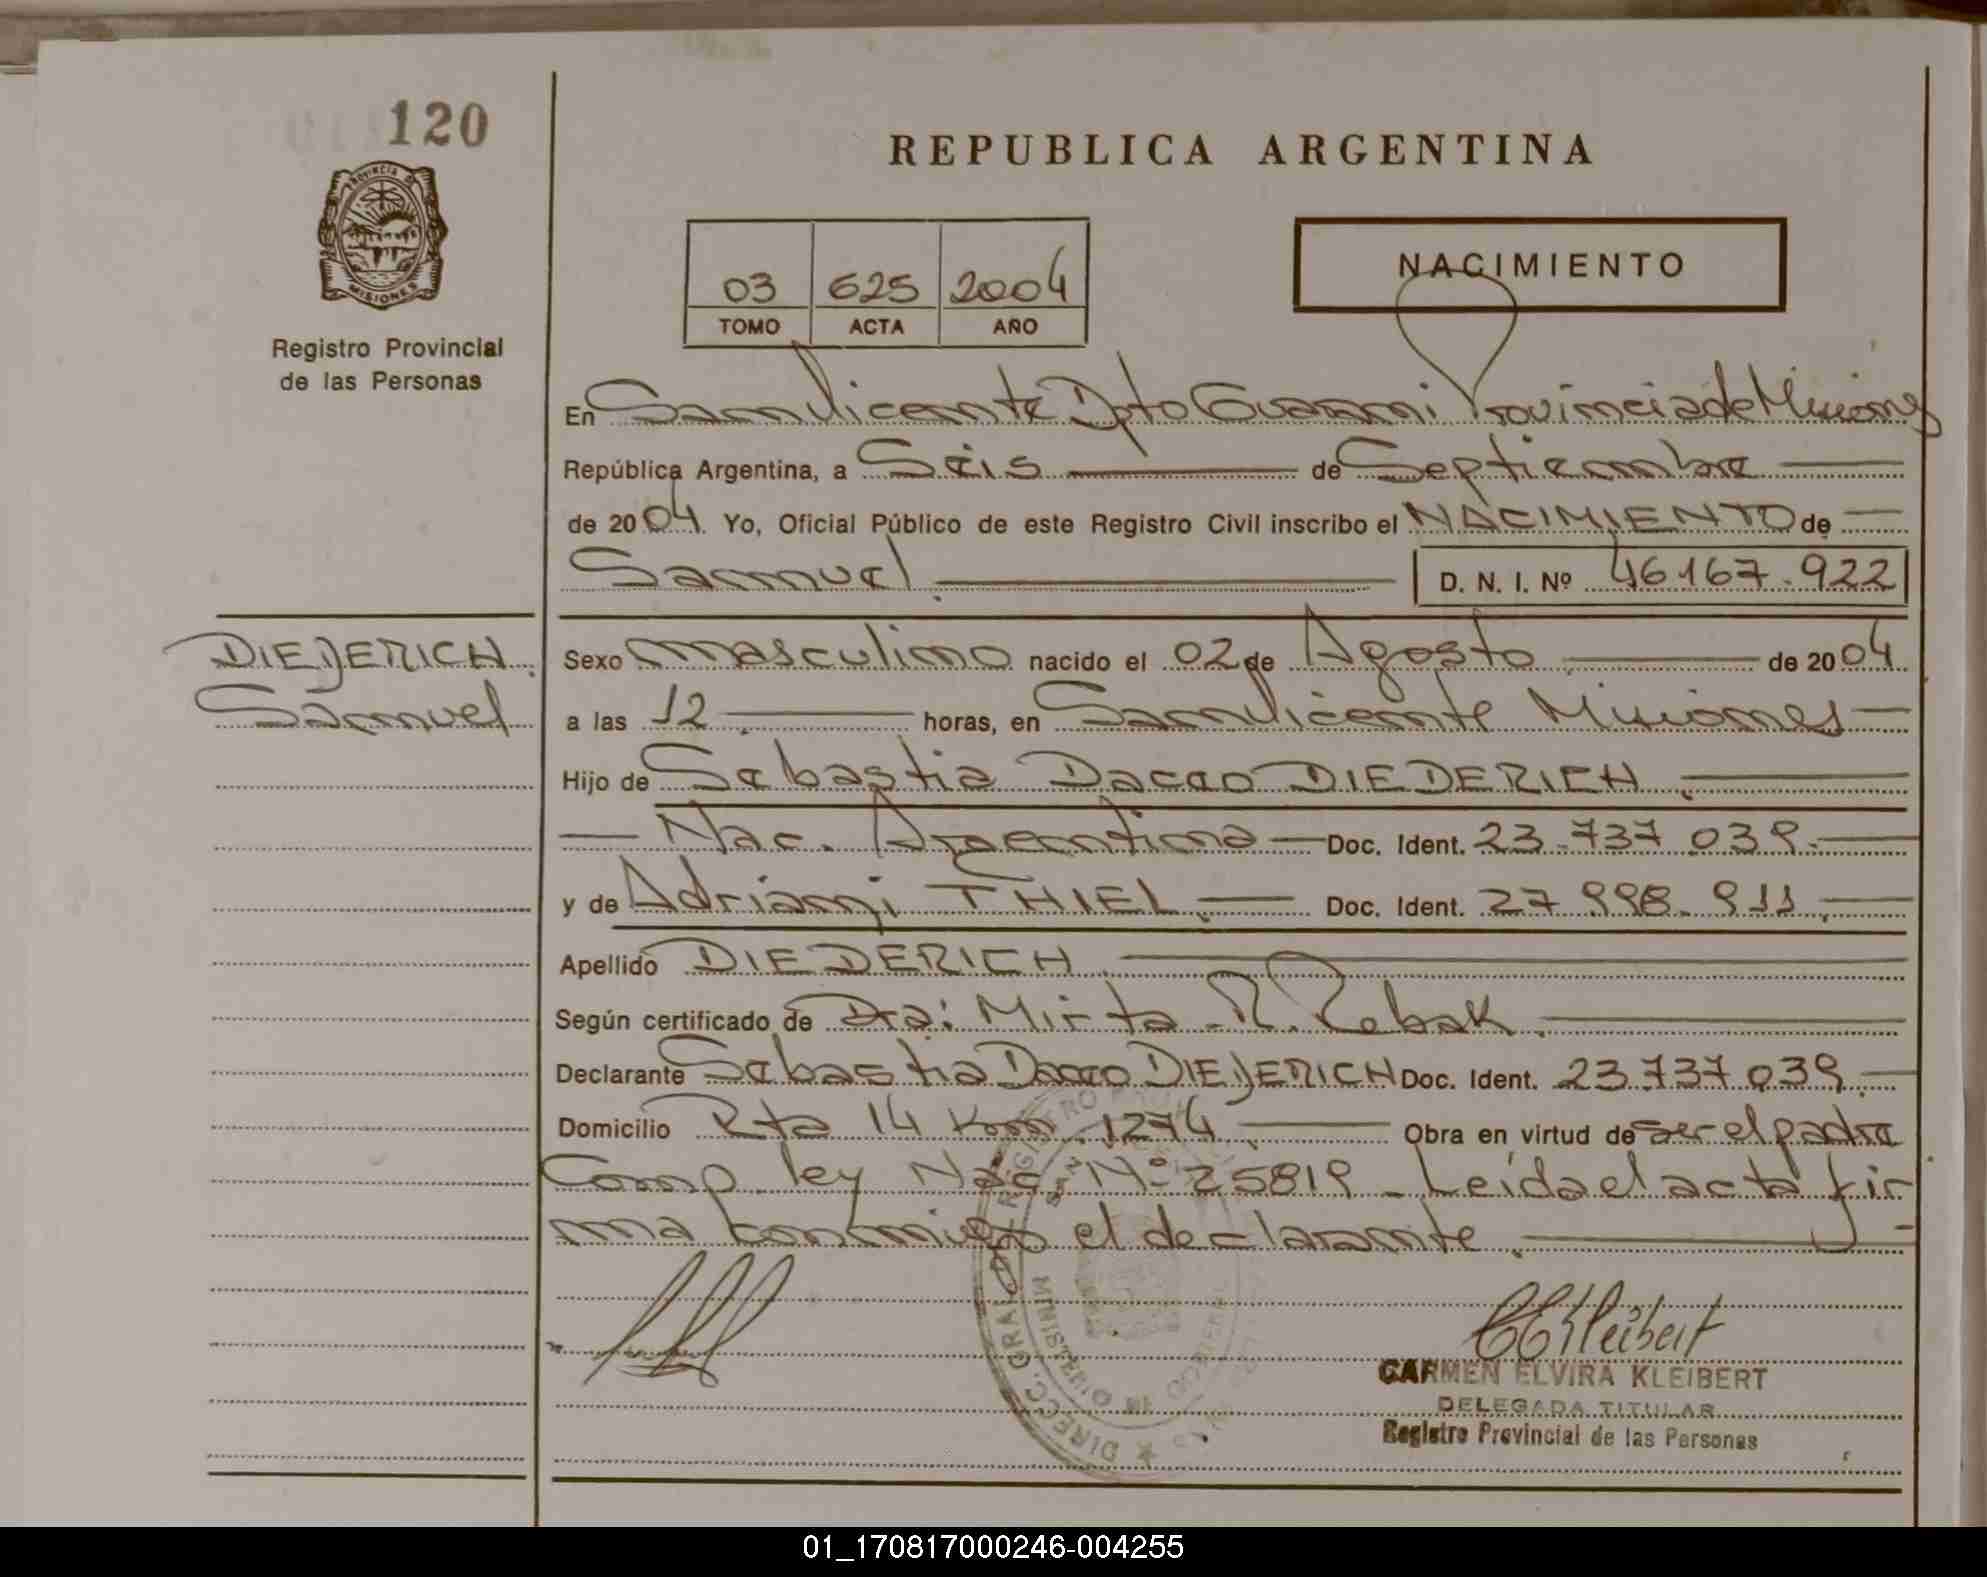 120
REPUBLICA ARGENTINA
PROVINCIA DE
MISIONES
Registro Provincial
de las Personas
03 625 2004
TOMO ACTA AÑO
NACIMIENTO
En San Vicente Dpto Guarani Provincia de Misiones
República Argentina, a Seis de Septiembre
de 2004. Yo, Oficial Público de este Registro Civil inscribo el NACIMIENTO de
Samuel D. N. I. Nº 46167.922
DIEDERICH
Samuel
Sexo masculino nacido el 02 de Agosto de 2004
a las 12 horas, en San Vicente Misiones
Hijo de Sebastia Dacao DIEDERICH
Nac. Argentina Doc. Ident. 23.737.039.
y de Adriani THIEL Doc. Ident. 27.998.911
Apellido DIEDERICH
Según certificado de Dra: Mirta R. Rebak
Declarante Sebastia Dacao DIEDERICH Doc. Ident. 23.737.039.
Domicilio Rta 14 Km 1274 Obra en virtud de ser el padre
Comp. ley Nac. Nº 25819 - Leída el acta fir
ma conmigo el declarante.
DIRECC. GRAL. DEL REGISTRO
MINISTERIO DE GOBIERNO
CEKleibert
CARMEN ELVIRA KLEIBERT
DELEGADA TITULAR
Registro Provincial de las Personas
01_170817000246-004255